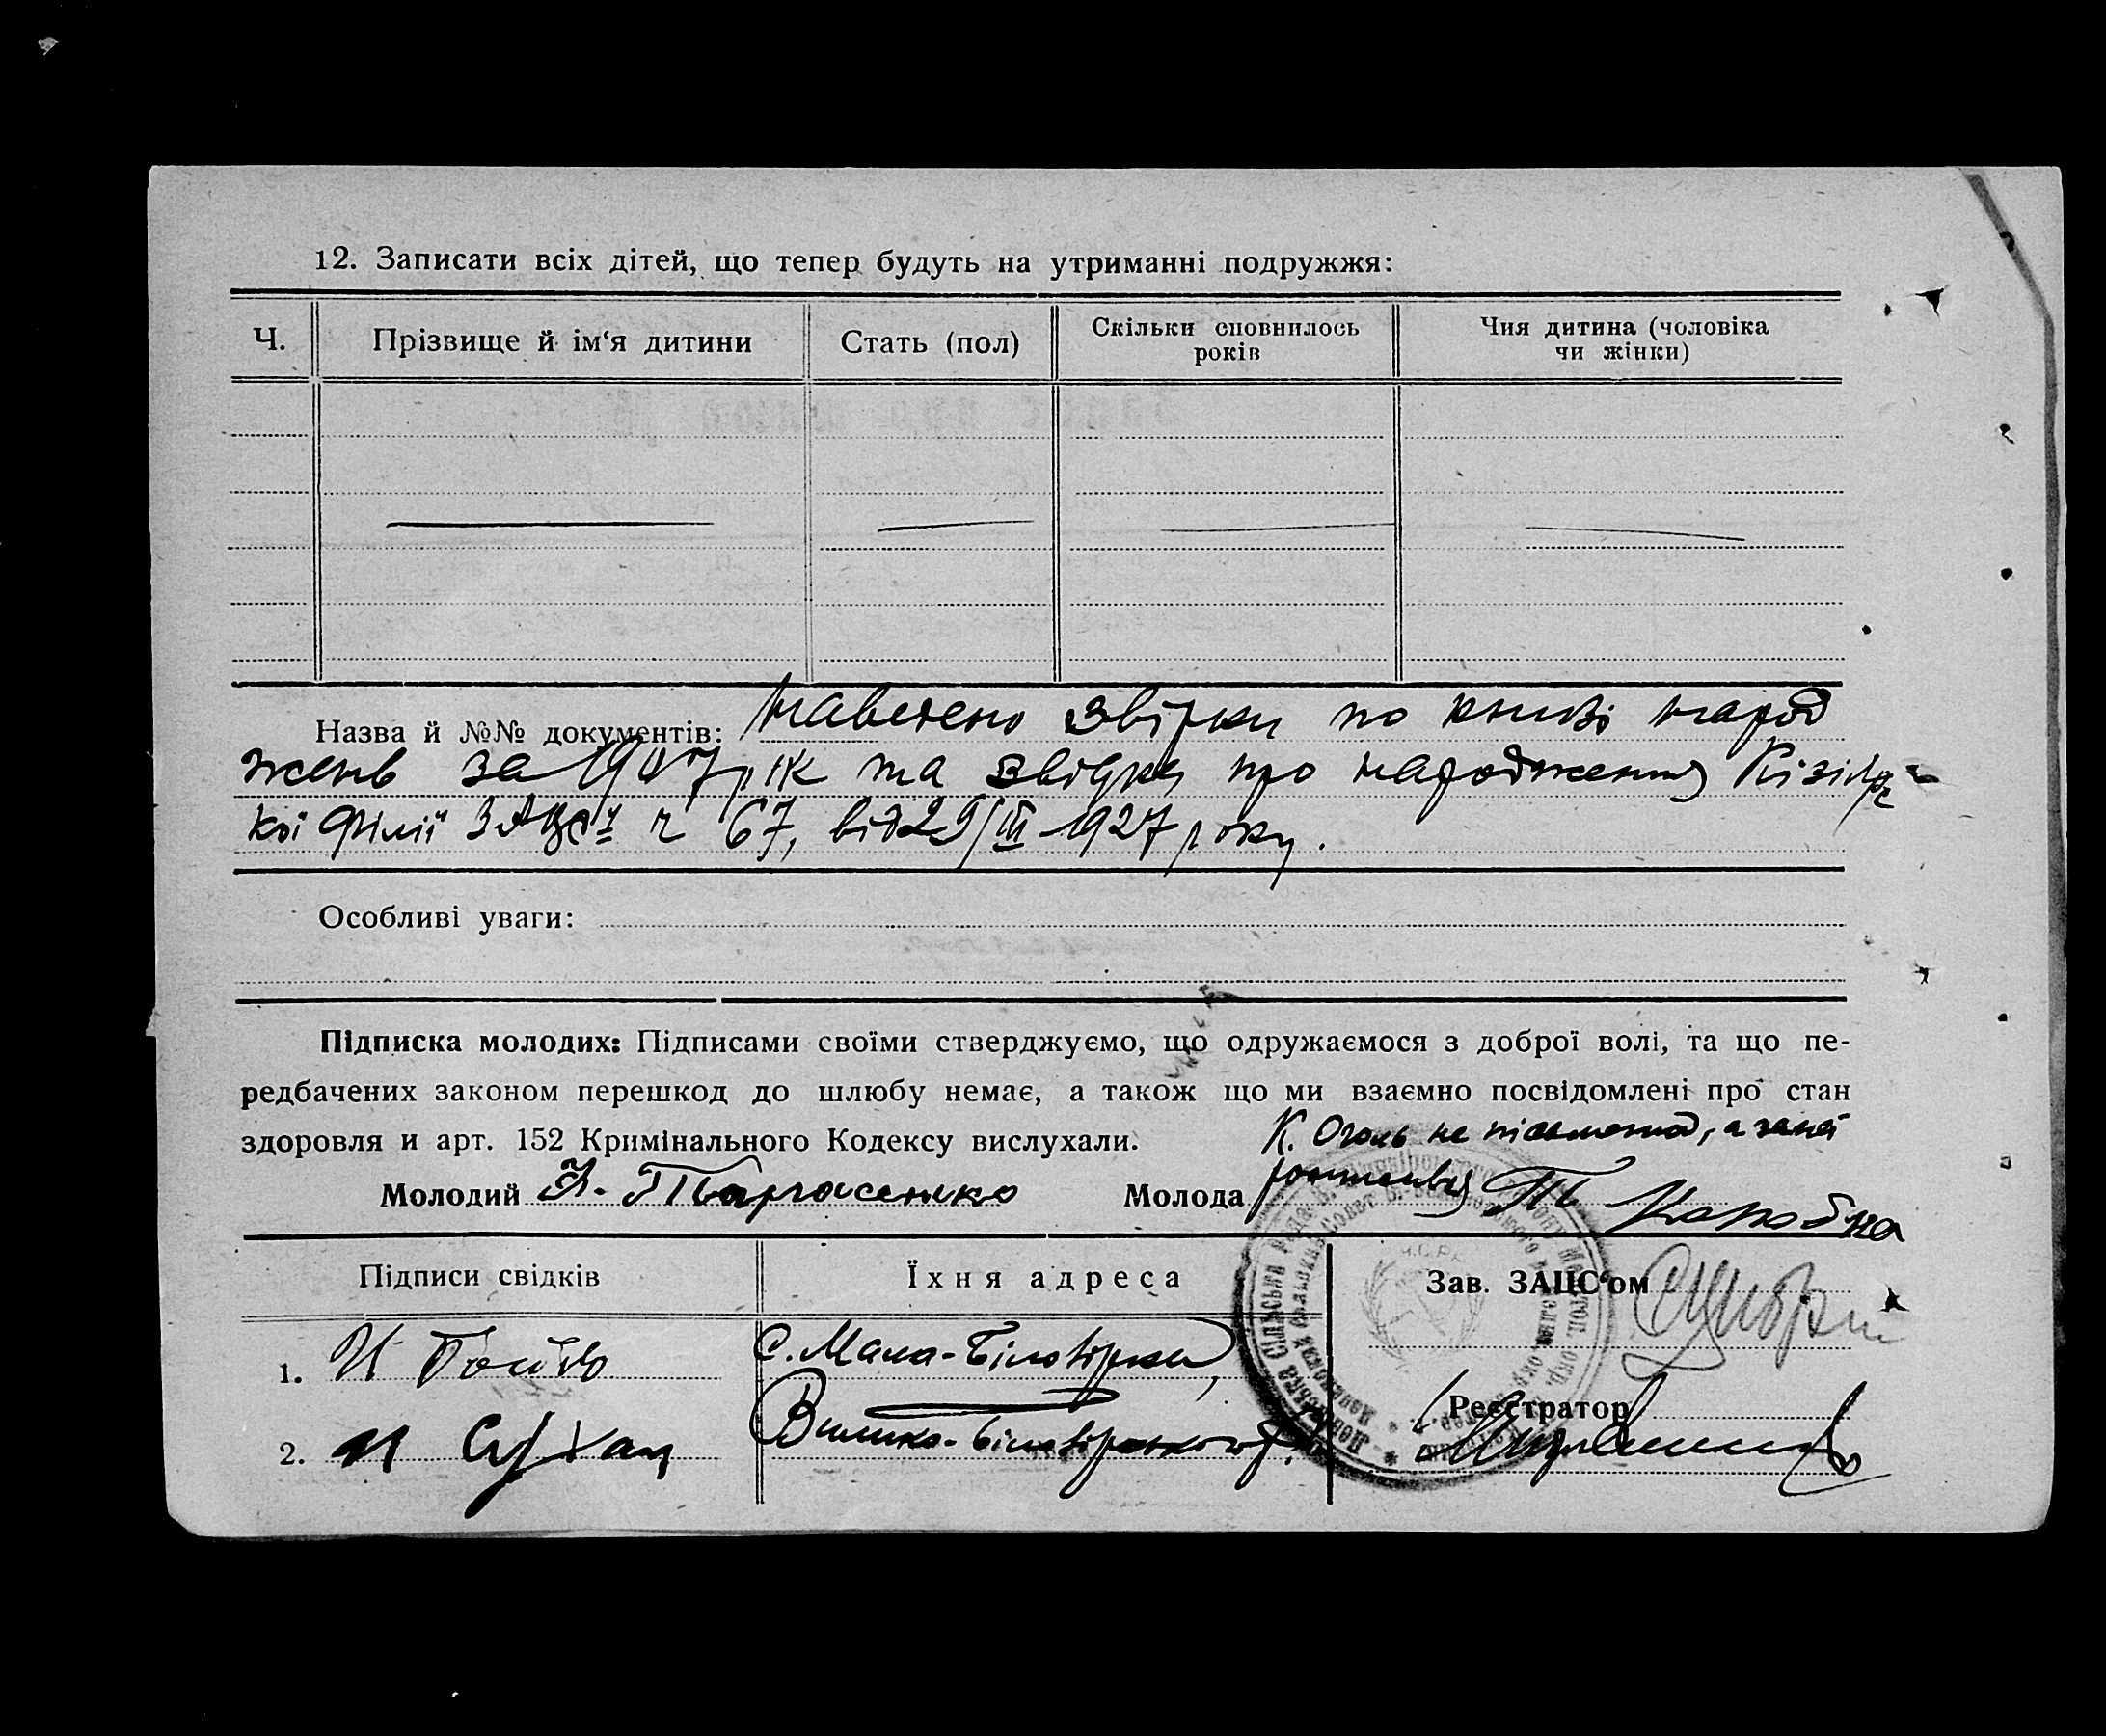 12. Записати всіх дітей, що тепер будуть на утриманні подружжя:
Ч. Прізвище й ім‘я дитини Стать (пол) Скільки сповнилось років Чия дитина (чоловіка чи жінки)
Назва й №№ документів: звірки по книзі народ
жень за 1907 рік та звідки про народження
кої філії ЗАЦС'у ч 67, від 29/III 1927 року.
Особливі уваги:
Підписка молодих: Підписами своїми стверджуємо, що одружаємося з доброї волі, та що пе-
редбачених законом перешкод до шлюбу немає, а також що ми взаємно посвідомлені про стан
здоровля и арт. 152 Кримінального Кодексу вислухали.
К. Оголь не письменна, а за неї
Молодий Тарасенко Молода
Підписи свідків Їхня адреса Зав. ЗАЦС‘ом
1. с. Мала-Білозірка,
Реєстратор
2.